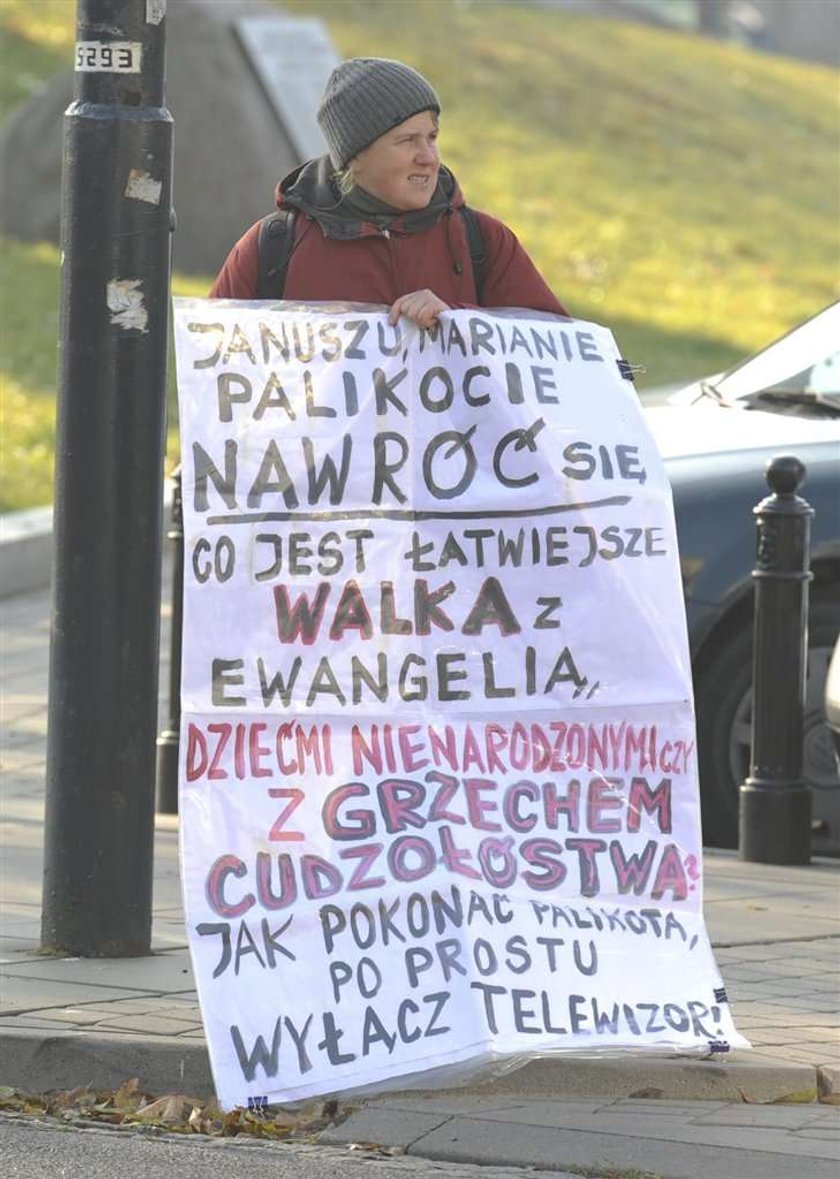 S293
JANUSZU, MARIANIE
PALIKOCIE
NAWRÓĆ SIĘ
CO JEST ŁATWIEJSZE
WALKA Z
EWANGELIĄ,,
DZIEĆMI NIENARODZONYMI CZY
Z GRZECHEM
CUDZOŁÓSTWA?
JAK POKONAĆ PALIKOTA,
PO PROSTU
WYŁĄCZ TELEWIZOR!